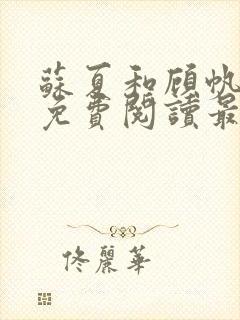 蘇夏和顧帆
免費閱讀最
佟麗華